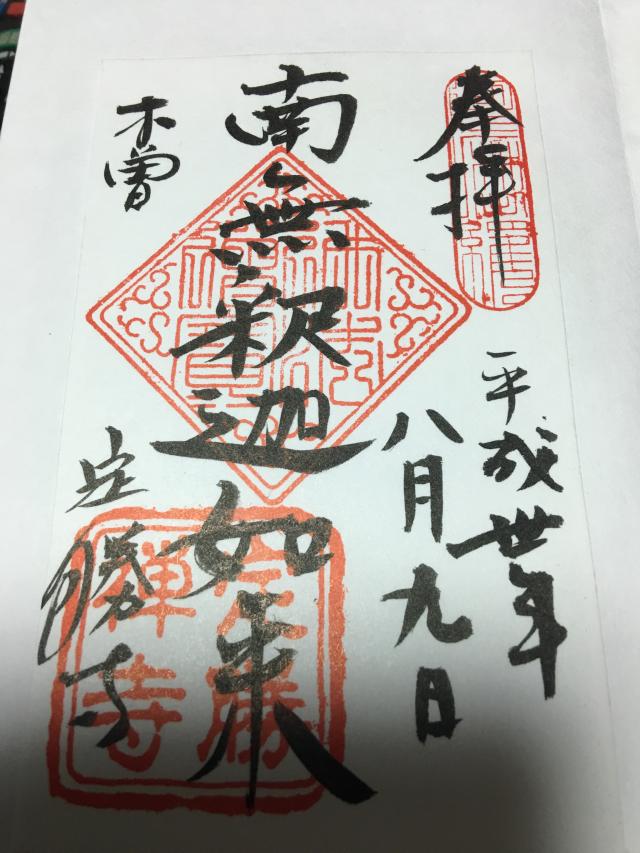 奉拝
平成卅年
八月九日
南無釈迦如来
木曽
定勝寺
定勝
禅寺